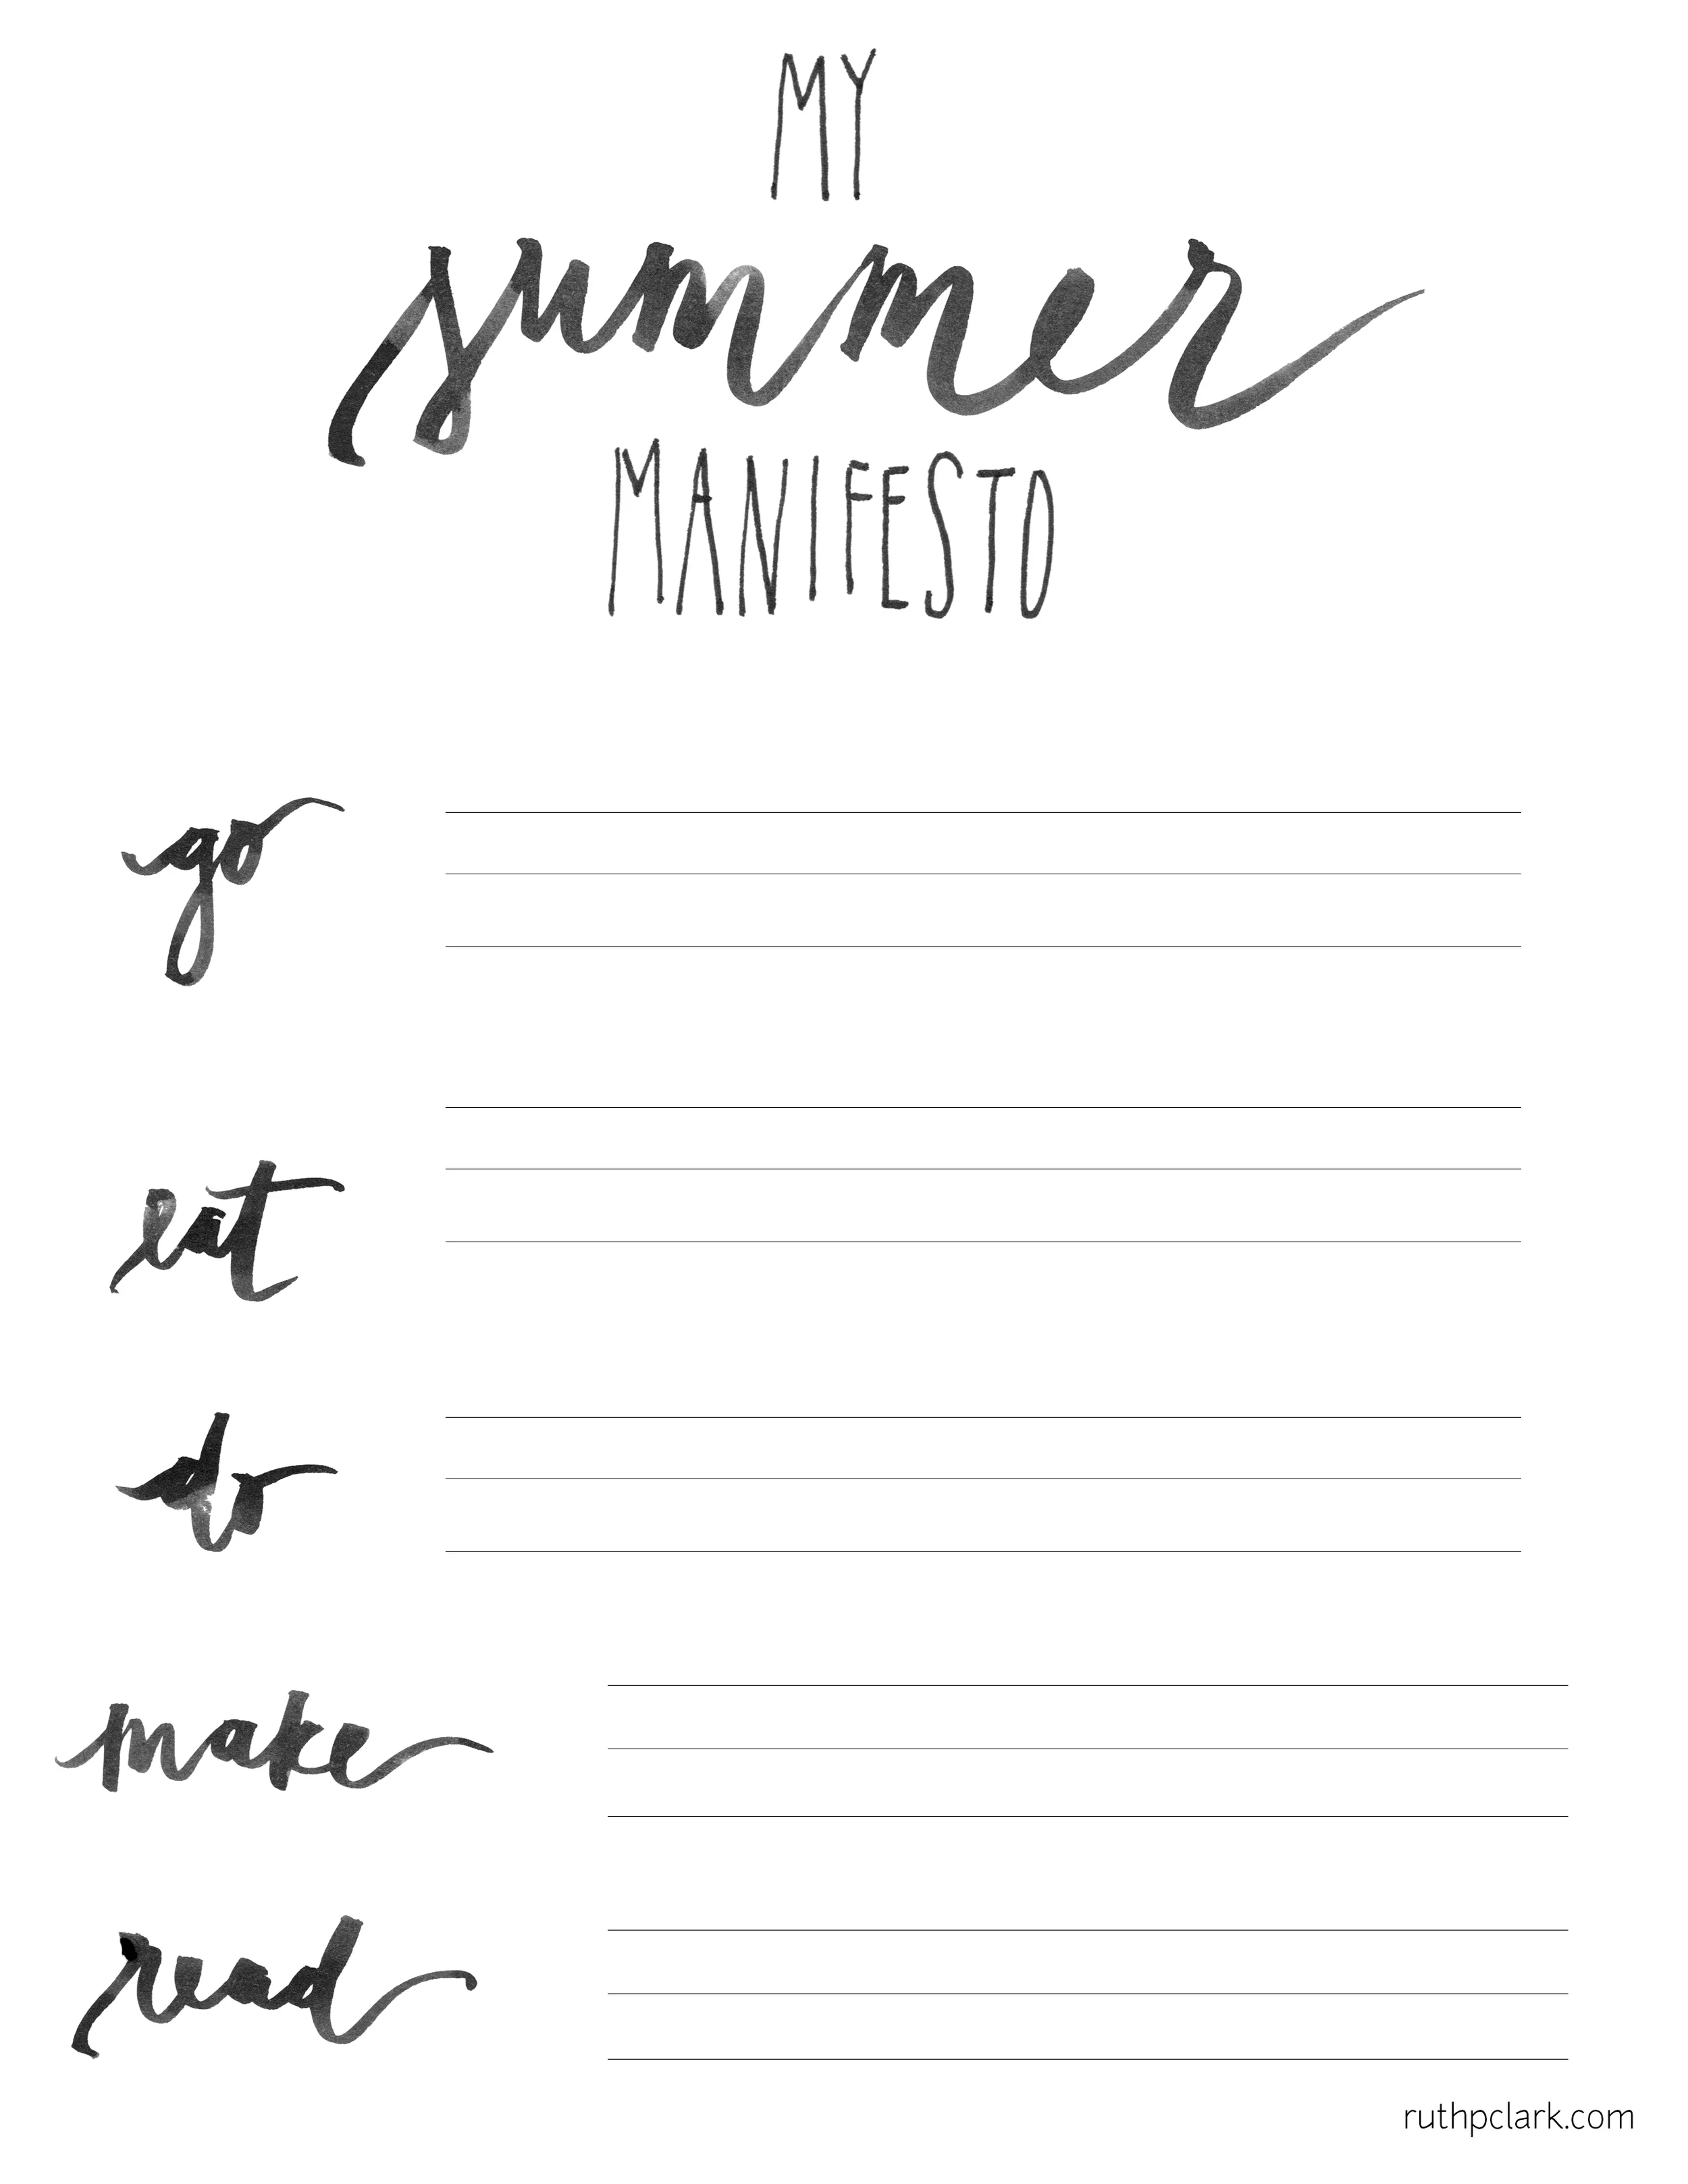 MY
summer
MANIFESTO
go
eat
do
make
read
ruthpclark.com